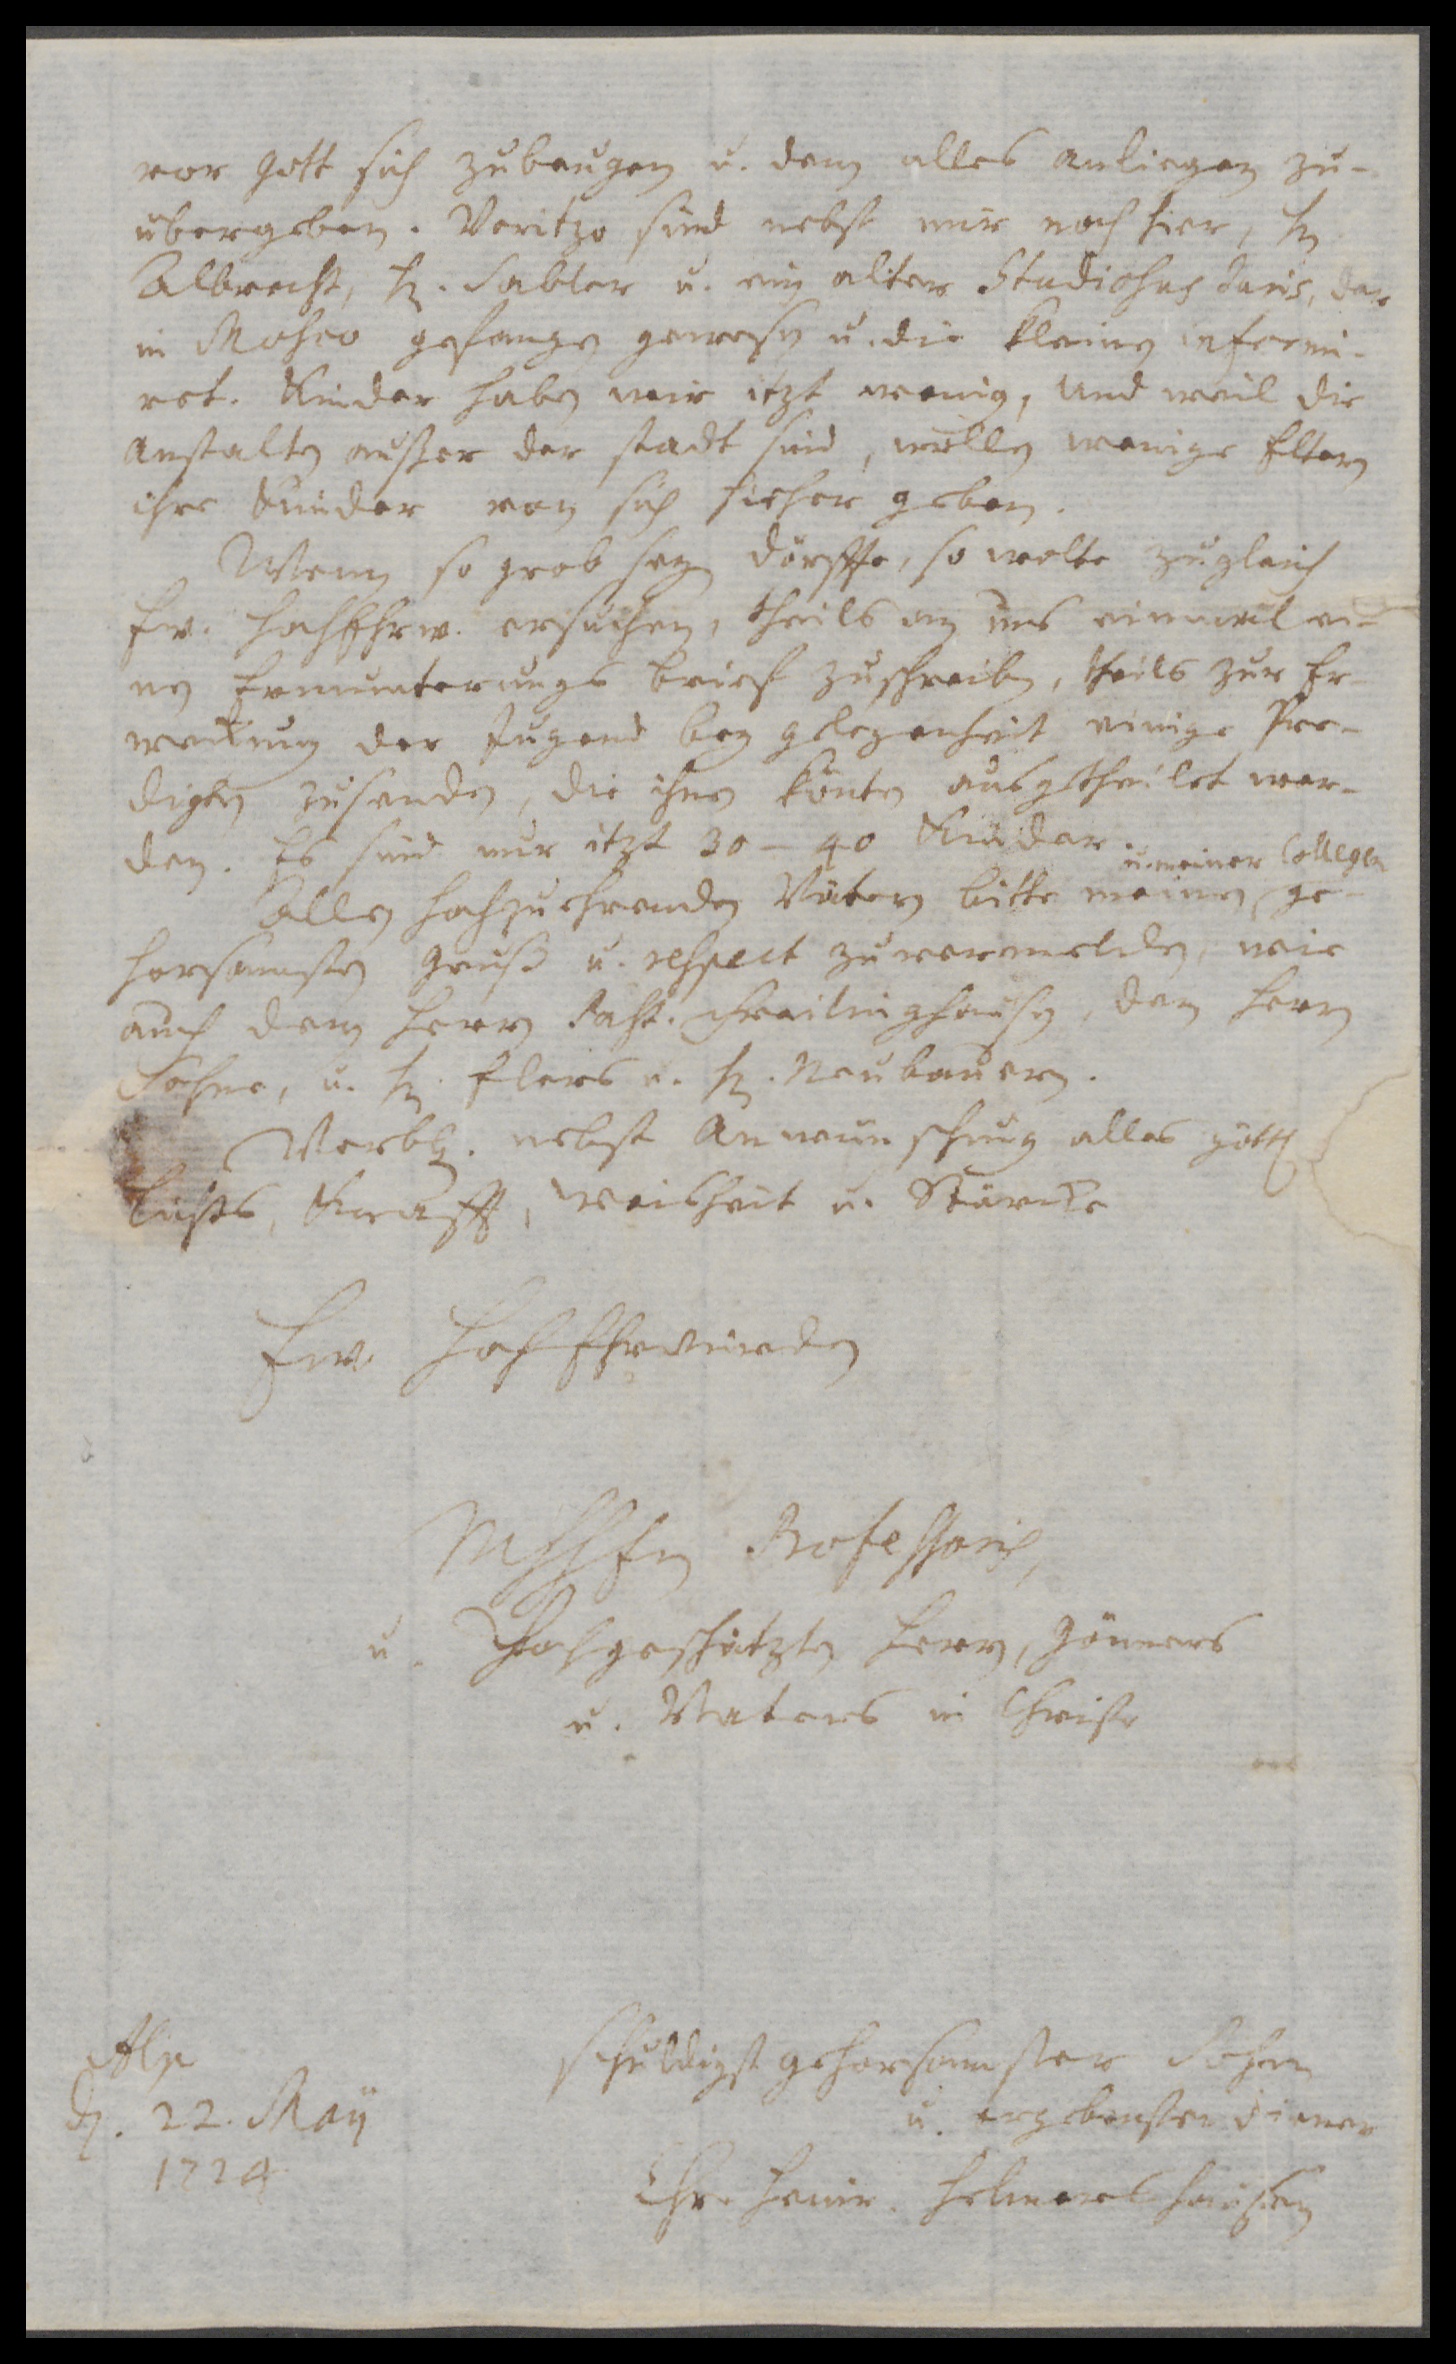 vor Gott sich zubeugen u. dem alles anliegen zu-
übergeben. Voritzo sind nebst mir noch hier, H.
Albrecht, H. Sabler u. ein alter Studiosus Juris, der
in Moscо gefangen gewesen u. die kleinen informi-
ret. Kinder haben wir itzt wenig, und weil die
anstalten außer der stadt sind, wollen wenige Eltern
ihre Kinder von sich hieher geben.
Wenn so grob seyn dörffte, so wolte zugleich
Ew. HochEhrw. ersuchen, theils an uns einmal ei-
nen Ermunterungs brieff zuschreiben, theils zur Er-
weckung der Jugend bey gelegenheit einige Pre-
digten zusenden, die ihnen könten ausgetheilet wer-
den. Es sind nur itzt 30 - 40 Kinder.
u. meiner Collegen
Allen hochzuehrenden Vätern bitte meinen ge-
horsamsten gruß u. respect zuvermelden, wie
auch dem Herrn Past. Freilinghausen, dem Herrn
Sohne, u. H. Elers u. H. Neubauern.
Verbl. nebst Anwünschung alles göttl.
Lichts, Krafft, weisheit u. Stärcke
Ew. HochEhrwürden
MHHEn Professoris,
u. Hochgeschätzten Herrn, Gönners
u. Vaters in Christo
Alp
d. 22. May
1724
schuldigst gehorsamster Sohn
u. ergebenster diener
Chr. Henr. Helmershausen